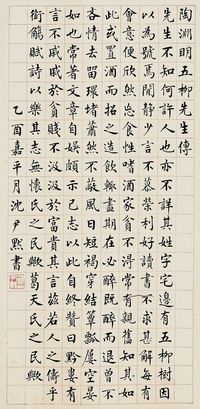 陶淵明五柳先生傳
先生不知何許人也亦不詳其姓字宅邊有五柳樹因
以為號焉閒靜少言不慕榮利好讀書不求甚解每有
會意便欣然忘食性嗜酒家貧不能常得親舊知其如
此或置酒而招之造飲輒盡期在必醉既醉而退曾不
吝情去留環堵蕭然不蔽風日短褐穿結簞瓢屢空晏
如也常著文章自娛頗示己志以此自終贊曰黔婁有
言不戚戚於貧賤不汲汲於富貴其言茲若人之儔乎
銜觴賦詩以樂其志無懷氏之民歟葛天氏之民歟
乙酉嘉平月沈尹默書